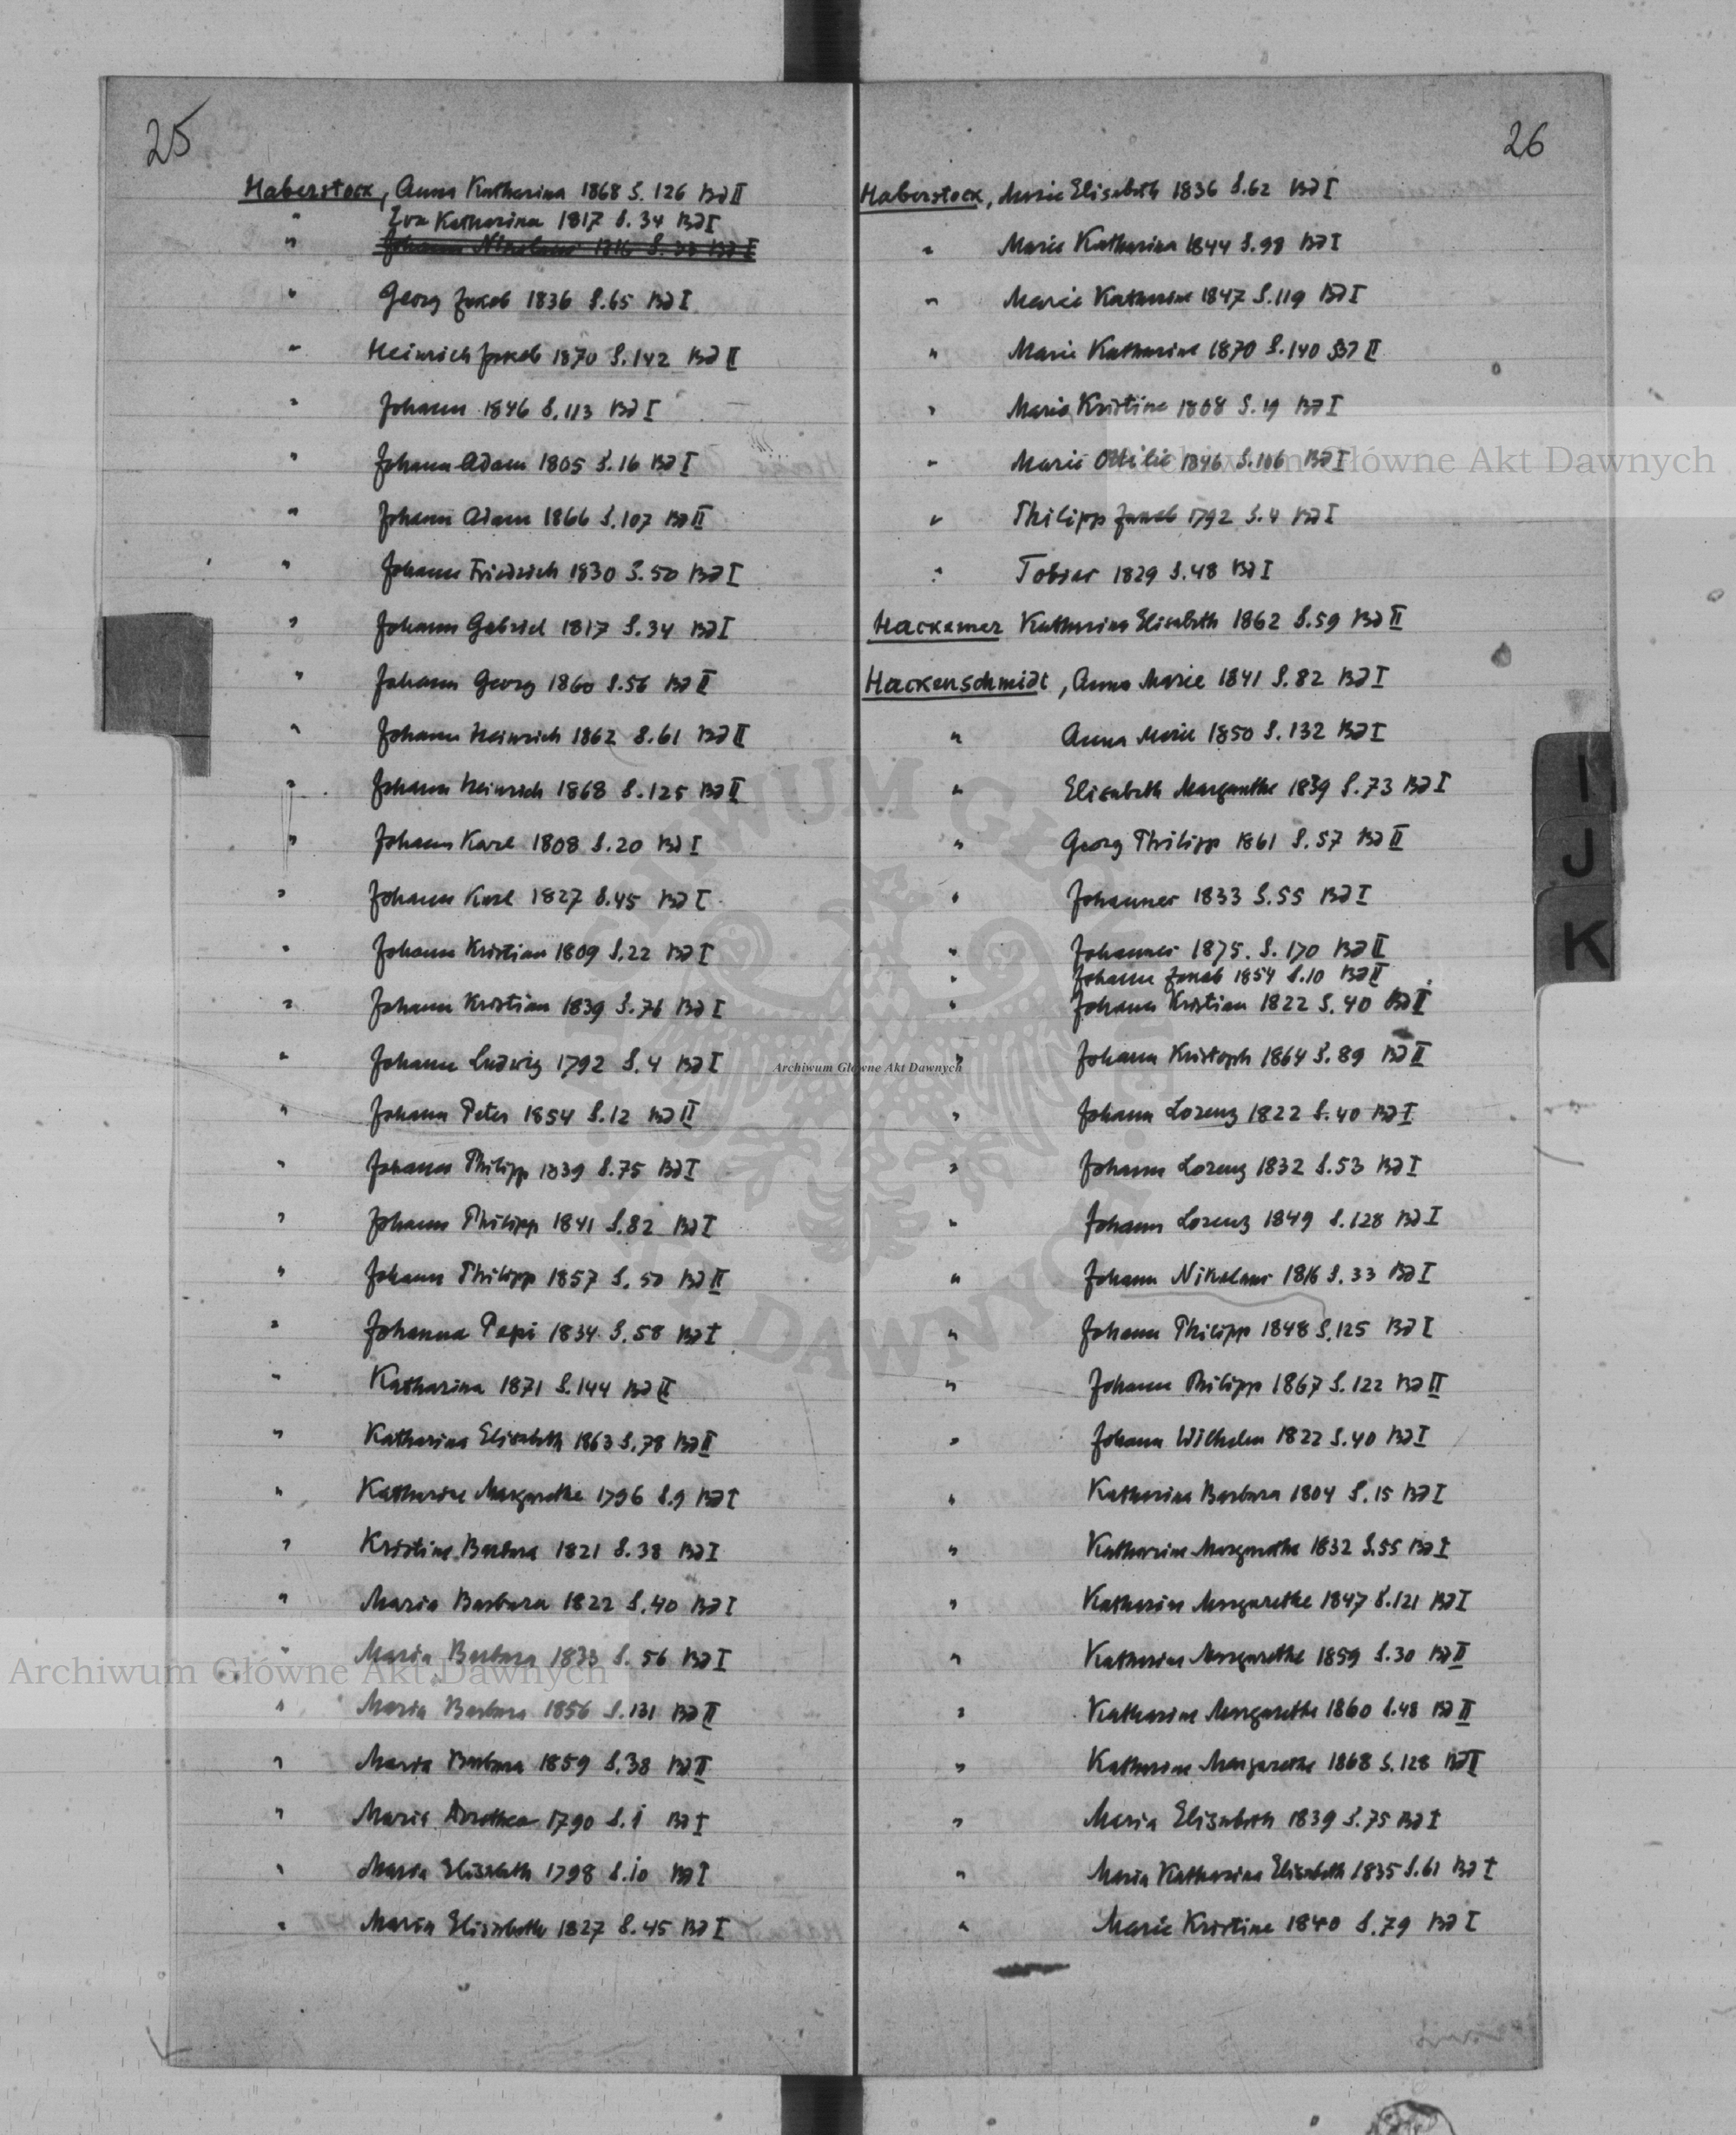 25
Haberstock, Anna Katharina 1868 S. 126 Bd II
" Eva Katharina 1817 S. 34 Bd I
" Johann Nikolaus 1816 S. 33 Bd I
" Georg Jakob 1836 S. 65 Bd I
" Heinrich Jakob 1870 S. 142 Bd II
" Johann 1846 S. 113 Bd I
" Johann Adam 1805 S. 16 Bd I
" Johann Adam 1866 S. 107 Bd II
" Johann Friedrich 1830 S. 50 Bd I
" Johann Gabriel 1817 S. 34 Bd I
" Johann Georg 1860 S. 56 Bd II
" Johann Heinrich 1862 S. 61 Bd II
" Johann Heinrich 1868 S. 125 Bd II
" Johann Karl 1808 S. 20 Bd I
" Johann Karl 1827 S. 45 Bd I
" Johann Kristian 1809 S. 22 Bd I
" Johann Kristian 1839 S. 76 Bd I
" Johann Ludwig 1792 S. 4 Bd I
" Johann Peter 1854 S. 12 Bd II
" Johann Philipp 1839 S. 75 Bd I
" Johann Philipp 1841 S. 82 Bd I
" Johann Philipp 1857 S. 50 Bd II
" Johanna Pepi 1834 S. 58 Bd I
" Katharina 1871 S. 144 Bd II
" Katharina Elisabeth 1863 S. 78 Bd II
" Katharina Margarethe 1796 S. 9 Bd I
" Kristina Barbara 1821 S. 38 Bd I
" Maria Barbara 1822 S. 40 Bd I
" Maria Barbara 1833 S. 56 Bd I
" Maria Barbara 1856 S. 131 Bd II
" Maria Barbara 1859 S. 38 Bd II
" Maria Dorothea 1790 S. 1 Bd I
" Maria Elisabeth 1798 S. 10 Bd I
" Maria Elisabeth 1827 S. 45 Bd I
26
Haberstock, Marie Elisabeth 1836 S. 62 Bd I
" Marie Katharina 1844 S. 98 Bd I
" Marie Katharine 1847 S. 119 Bd I
" Marie Katharine 1870 S. 140 Bd II
" Maria Kristine 1808 S. 19 Bd I
" Marie Ottilie 1846 S. 106 Bd I
" Philipp Jakob 1792 S. 4 Bd I
" Tobias 1829 S. 48 Bd I
Hackamer Katharina Elisabeth 1862 S. 59 Bd II
Hackenschmidt, Anna Marie 1841 S. 82 Bd I
" Anna Marie 1850 S. 132 Bd I
" Elisabeth Margarethe 1839 S. 73 Bd I
" Georg Philipp 1861 S. 57 Bd II
" Johannes 1833 S. 55 Bd I
" Johannes 1875. S. 170 Bd II
" Johann Jakob 1854 S. 10 Bd II
" Johann Kristian 1822 S. 40 Bd I
" Johann Kristoph 1864 S. 89 Bd II
" Johann Lorenz 1822 S. 40 Bd I
" Johann Lorenz 1832 S. 53 Bd I
" Johann Lorenz 1849 S. 128 Bd I
" Johann Nikolaus 1816 S. 33 Bd I
" Johann Philipp 1848 S. 125 Bd I
" Johann Philipp 1867 S. 122 Bd II
" Johann Wilhelm 1822 S. 40 Bd I
" Katharina Barbara 1804 S. 15 Bd I
" Katharine Margarethe 1832 S. 55 Bd I
" Katharine Margarethe 1847 S. 121 Bd I
" Katharine Margarethe 1859 S. 30 Bd II
" Katharine Margarethe 1860 S. 48 Bd II
" Katharine Margarethe 1868 S. 128 Bd II
" Maria Elisabeth 1839 S. 75 Bd I
" Maria Katharina Elisabeth 1835 S. 61 Bd I
" Marie Kristine 1840 S. 79 Bd I
I
J
K
Archiwum Główne Akt Dawnych
Archiwum Główne Akt Dawnych
Archiwum Główne Akt Dawnych
ARCHIWUM GŁÓWNE AKT DAWNYCH